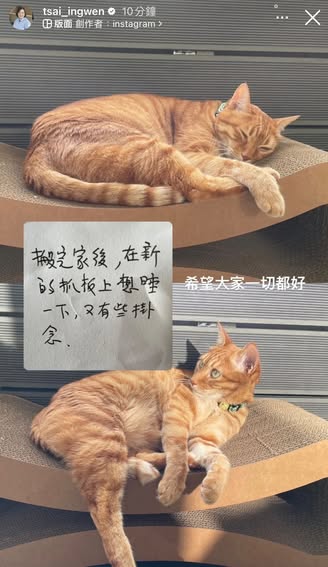 tsai_ingwen 10分鐘
版面 創作者：instagram >
搬完家後，在新
的抓板上想睡
一下，又有些掛
念.
希望大家一切都好